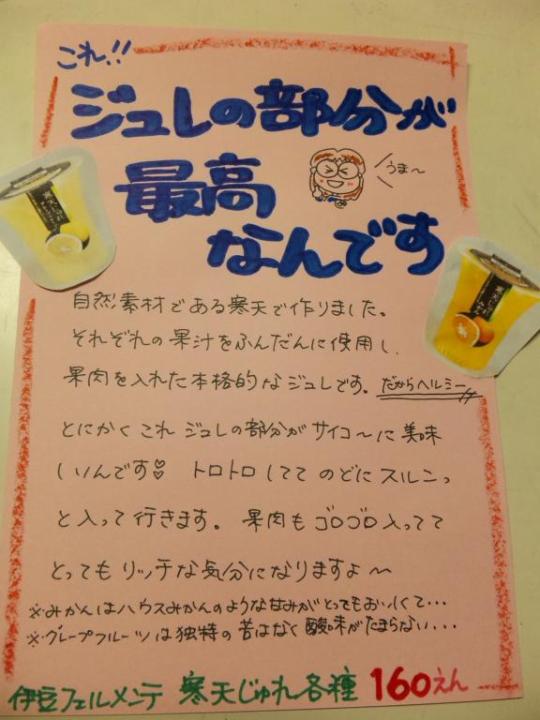 これ!!
ジュレの部分が
最高
うま〜
なんです
自然素材である寒天で作りました。
それぞれの果汁をふんだんに使用し、
果肉を入れた本格的なジュレです。だからヘルシー
とにかくこれジュレの部分がサイコ〜に美味
しいんです♡ トロトロしてて のどにスルンっ
と入って行きます。果肉もゴロゴロ入ってて
とってもリッチな気分になりますよ〜
※みかんはハウスみかんのような甘みがとってもおいしくて・・・
※グレープフルーツは独特の苦はなく酸味がたまらない・・・
伊豆フェルメンテ 寒天じゅれ各種 160えん